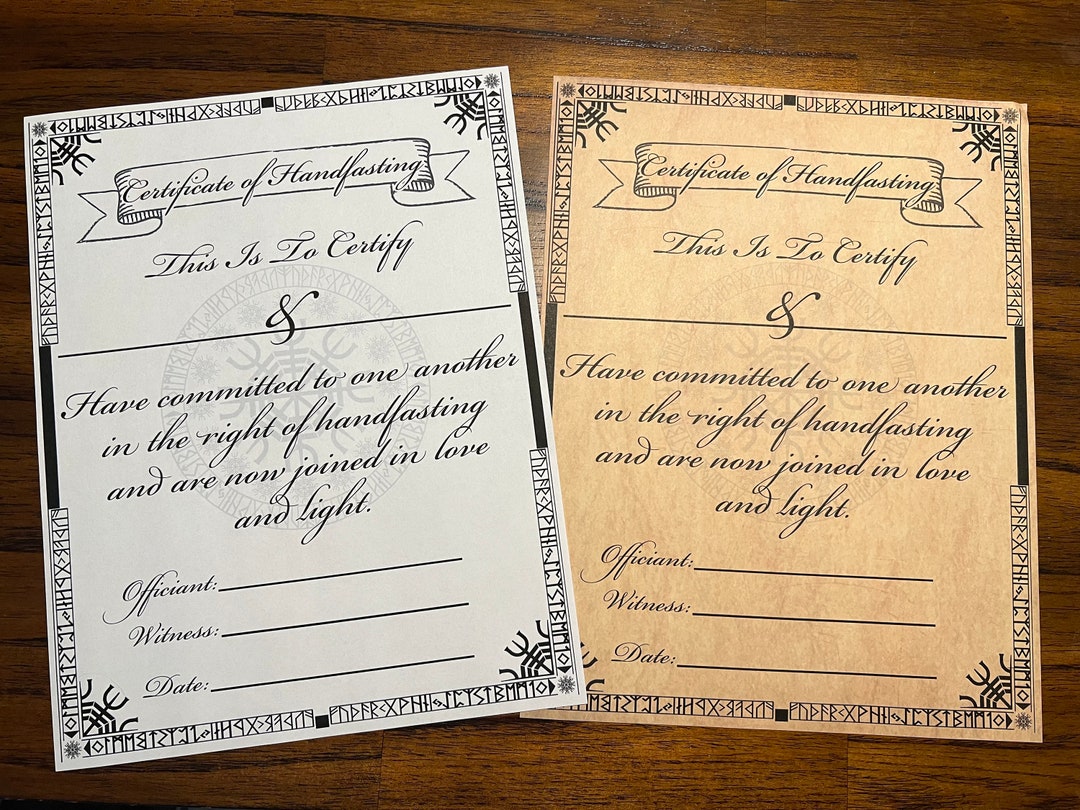 Certificate of Handfasting
This Is To Certify
&
Have committed to one another
in the right of handfasting
and are now joined in love
and light.
Officiant:
Witness:
Date:
Certificate of Handfasting
This Is To Certify
&
Have committed to one another
in the right of handfasting
and are now joined in love
and light.
Officiant:
Witness:
Date: